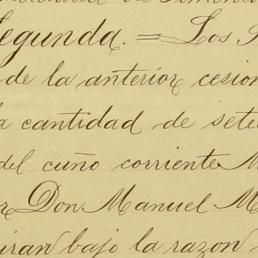 Segunda. = Los
de la anterior cesion
a cantidad de sete
del cuño corriente M
r Don Manuel M
iran bajo la razon